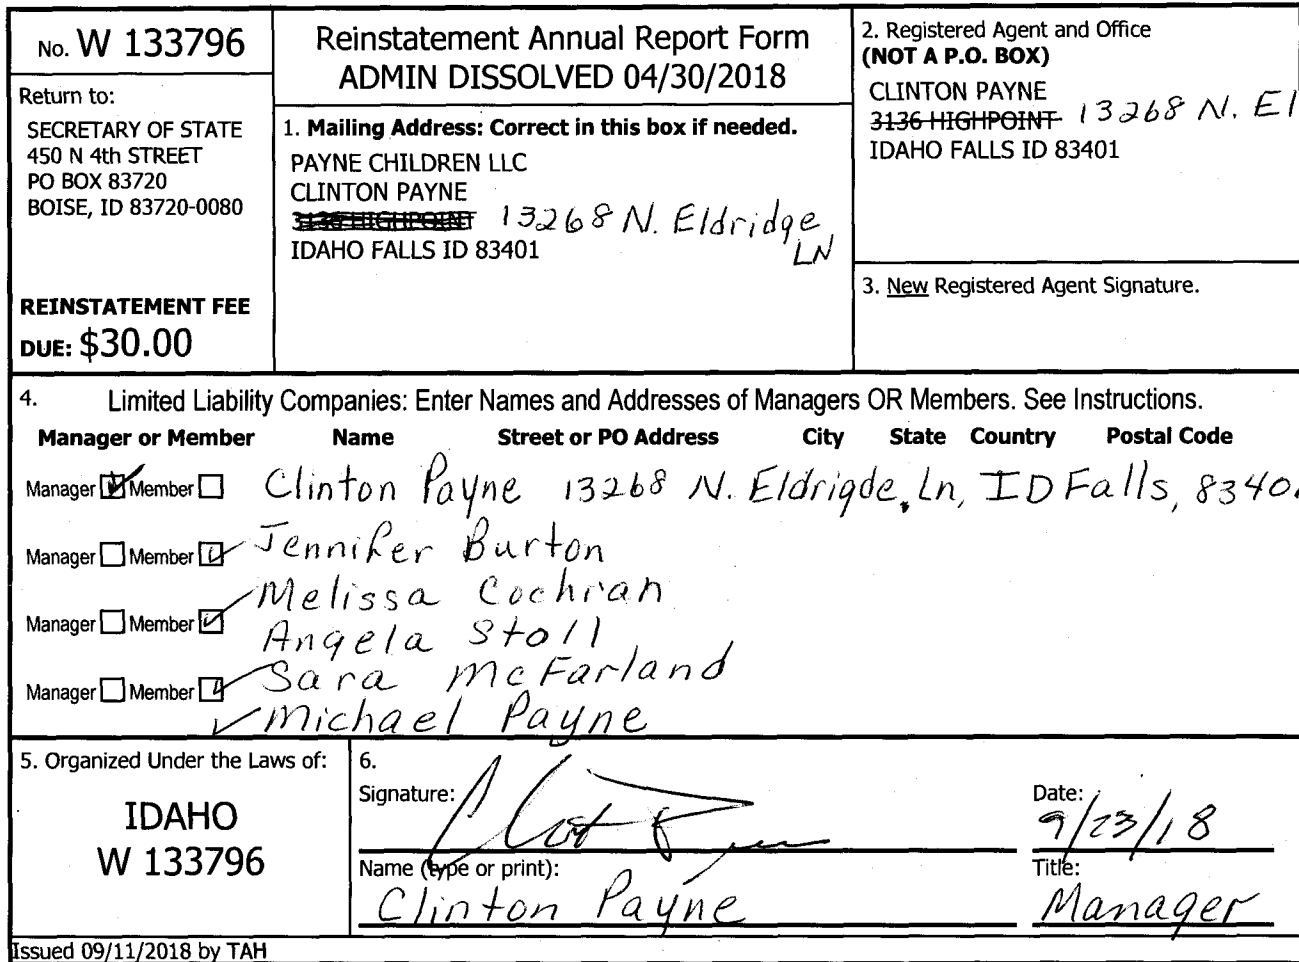 No. W 133796
Return to:
SECRETARY OF STATE
450 N 4th STREET
PO BOX 83720
BOISE, ID 83720-0080
REINSTATEMENT FEE
DUE: $30.00
Reinstatement Annual Report Form
ADMIN DISSOLVED 04/30/2018
1. Mailing Address: Correct in this box if needed.
PAYNE CHILDREN LLC
CLINTON PAYNE
3136 HIGHPOINT 13268 N. Eldridge
LN
IDAHO FALLS ID 83401
2. Registered Agent and Office
(NOT A P.O. BOX)
CLINTON PAYNE
3136 HIGHPOINT 13268 N. El
IDAHO FALLS ID 83401
3. New Registered Agent Signature.
4. Limited Liability Companies: Enter Names and Addresses of Managers OR Members. See Instructions.
Manager or Member Name Street or PO Address City State Country Postal Code
Manager Member Clinton Payne 13268 N. Eldrigde, Ln, ID Falls, 8340
Manager Member Jennifer Burton
Melissa Cochran
Manager Member
Angela Stoll
Sara McFarland
Manager Member
Michael Payne
5. Organized Under the Laws of:
IDAHO
W 133796
6.
Signature:
Date:
9/23/18
Name (type or print):
Clinton Payne
Title:
Manager
Issued 09/11/2018 by TAH